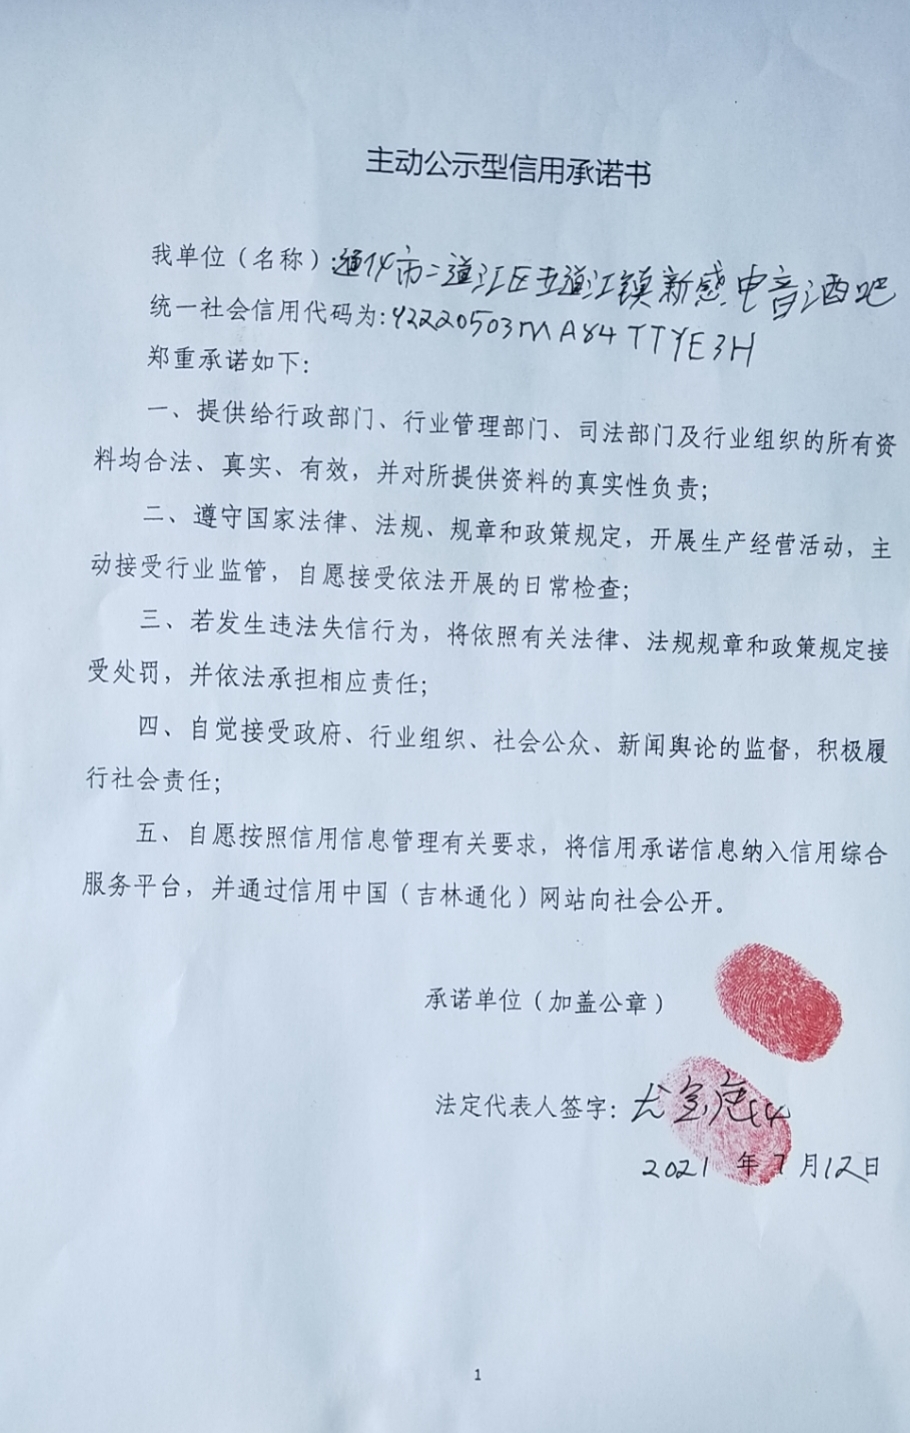 主动公示型信用承诺书
我单位（名称）:通化市二道江区五道江镇新感电音酒吧
统一社会信用代码为:92220503MA84TTYE3H
郑重承诺如下:
一、提供给行政部门、行业管理部门、司法部门及行业组织的所有资
料均合法、真实、有效，并对所提供资料的真实性负责;
二、遵守国家法律、法规、规章和政策规定，开展生产经营活动，主
动接受行业监管，自愿接受依法开展的日常检查;
三、若发生违法失信行为，将依照有关法律、法规规章和政策规定接
受处罚，并依法承担相应责任;
四、自觉接受政府、行业组织、社会公众、新闻舆论的监督，积极履
行社会责任;
五、自愿按照信用信息管理有关要求，将信用承诺信息纳入信用综合
服务平台，并通过信用中国（吉林通化）网站向社会公开。
承诺单位（加盖公章）
法定代表人签字:
2021 年 7 月12日
1